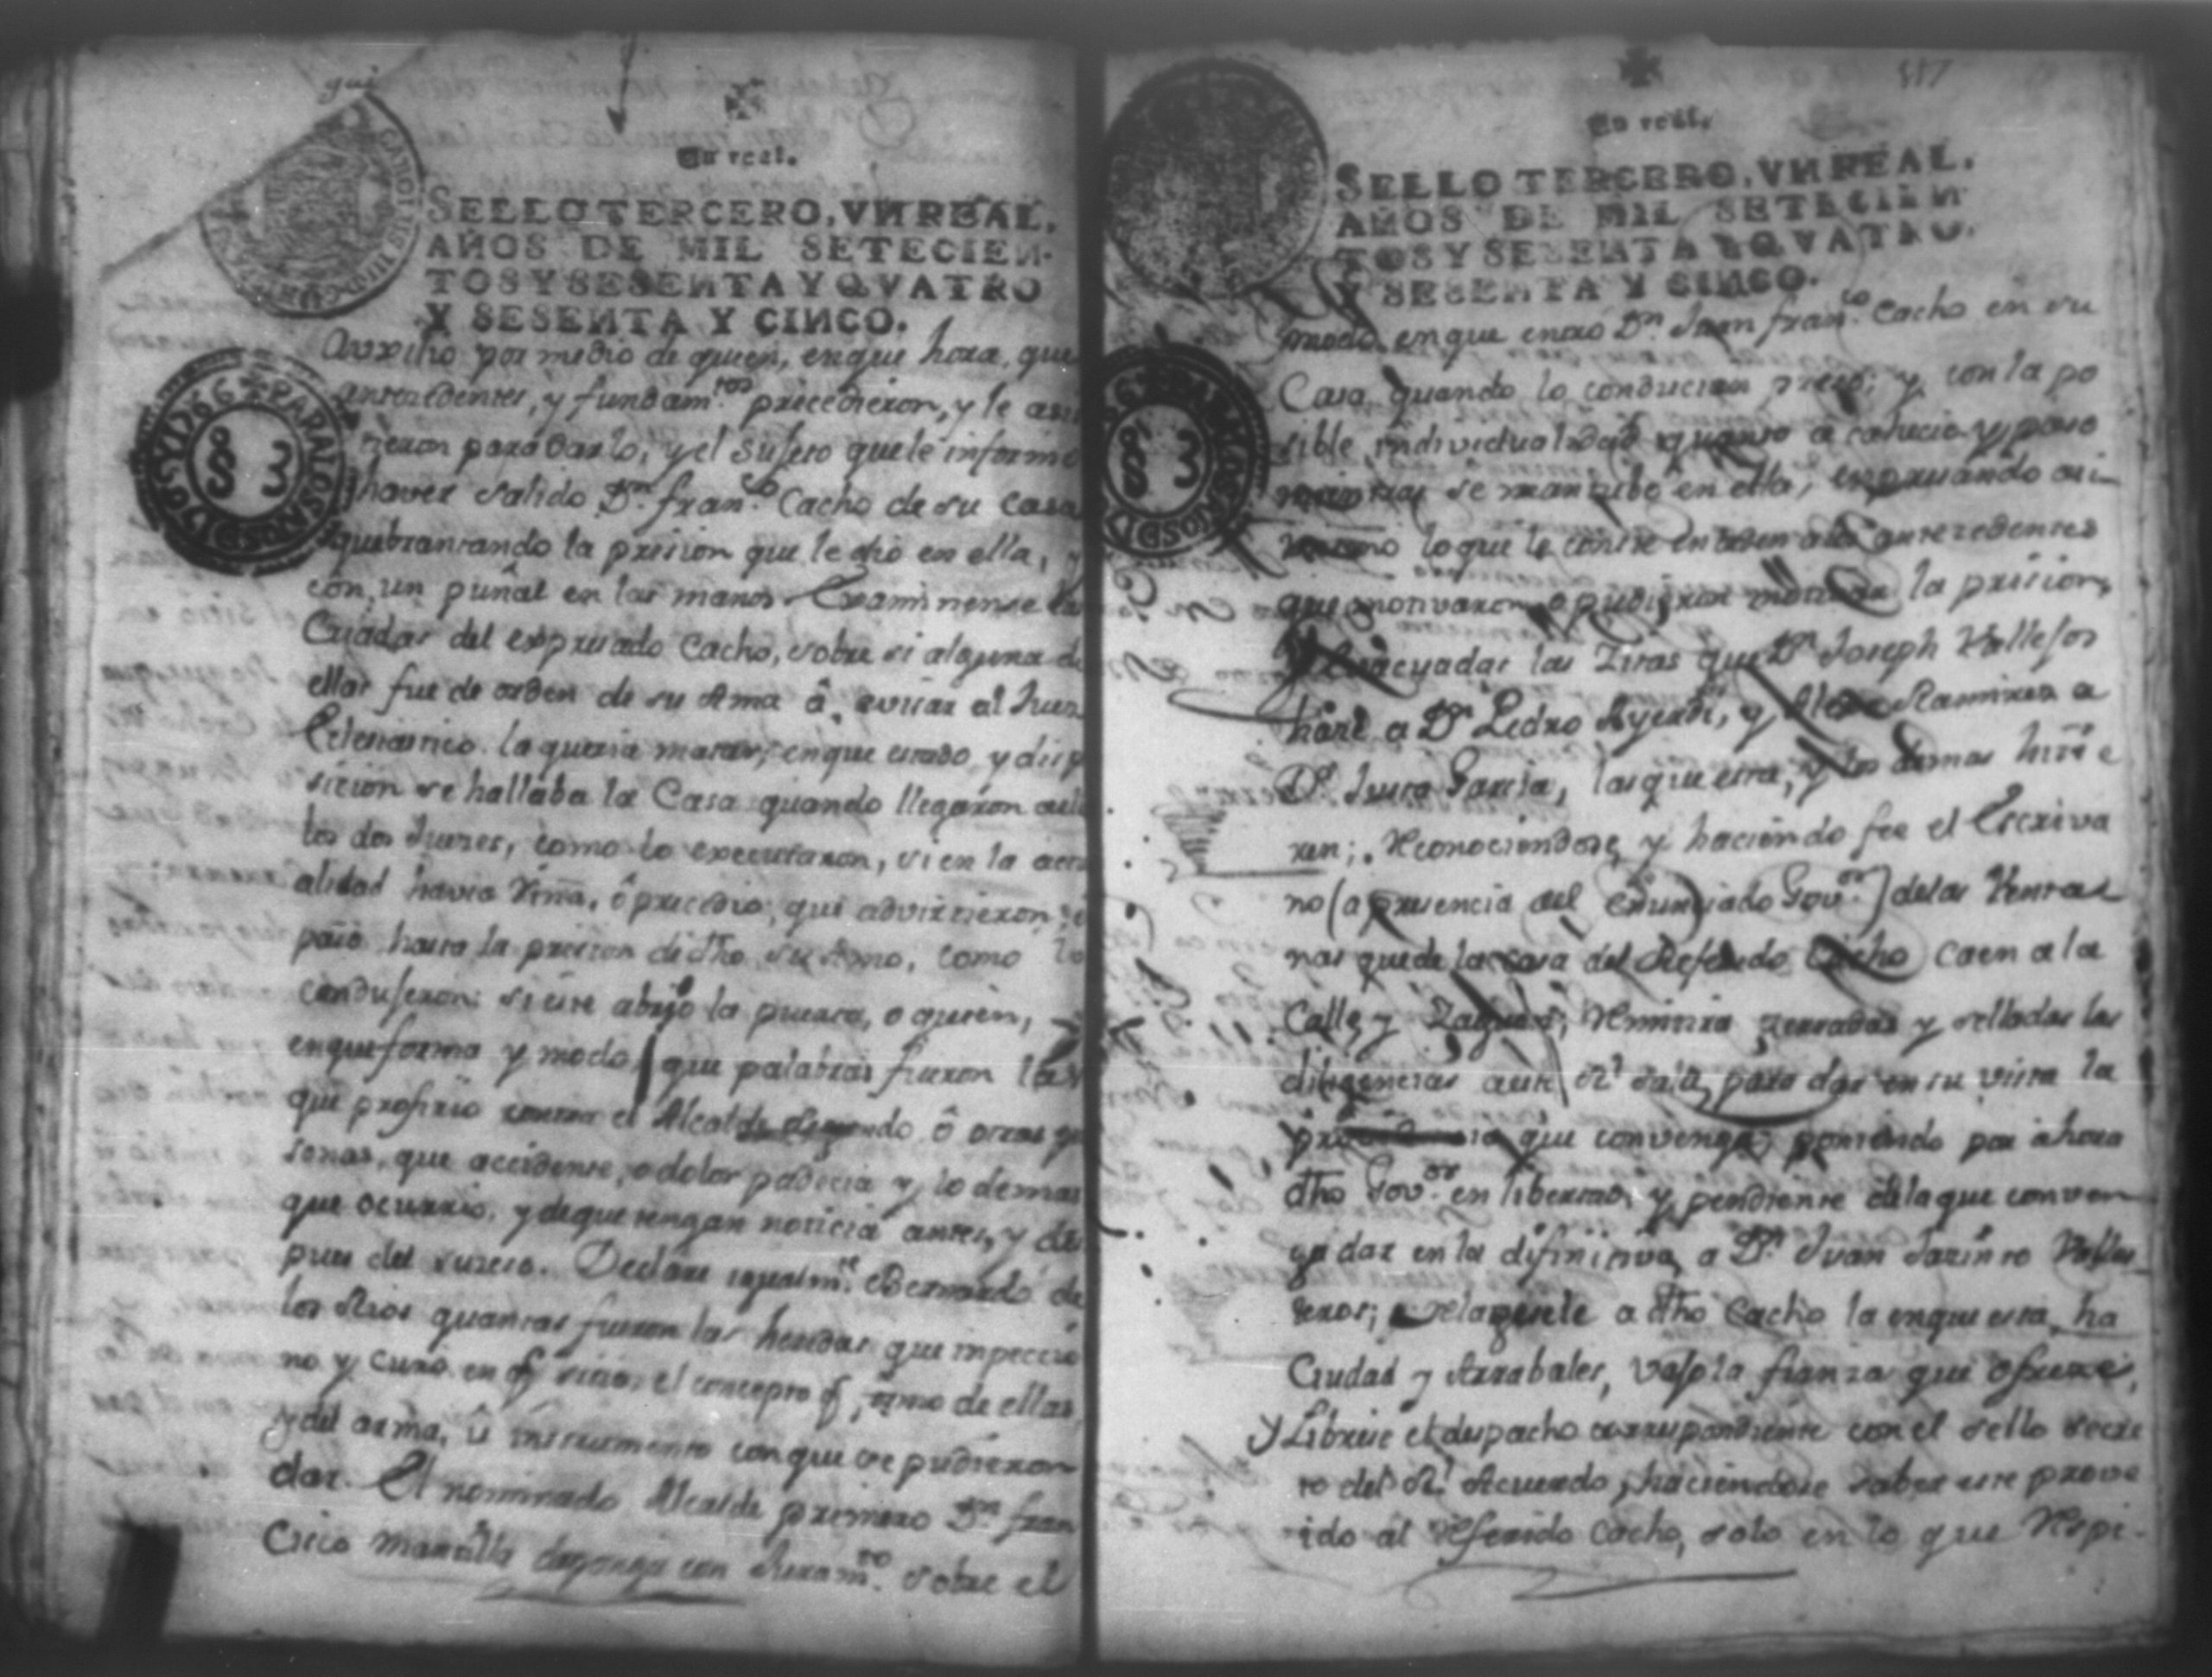 gui
Un real.
SELLO TERCERO, VN REAL,
AÑOS DE MIL SETECIEN-
TOS Y SESENTA Y QVATRO
Y SESENTA Y CINCO.
PARA LOS AÑOS DE 1765 Y 1766
S 3
Auxilio por medio de quien, enque hora, que
antezedentes, y fundam.tos precedieron, y le asis
tieron para darlo, y el sujeto que le informo
haver salido D.n fran.co Cacho de su casa
quebrantando la prision que le dio en ella, y
con un puñal en las manos. Examinense las
Criadas del expresado Cacho, sobre si alguna de
ellas fue de orden de su Ama â avisar al Juez
Eclesiastico la queria matar; enque estado y dispo
sicion se hallaba la Casa quando llegaron
los dos Juezes, como lo executaron, si en la actu
alidad havia riña, ô precedio; que advirtieron;
paso hasta la prision de dho su Amo, como lo
condujeron: si este abrio la puerta, o quien,
enque forma y modo, que palabras fueron las
que profirio contra el Alcalde segundo ô otras per
sonas, que accidente, o dolor padecia y lo demas
que ocurrio, y de que tengan noticia antes, y des
pues del suceso. Declare igualm.te Bernardo de
los Rios quantas fueron las heridas que inpeccio
no y curo en el concepto de ellas,
y del arma, û instrumento con que se pudieron
dar. El nominado Alcalde primero D.n fran
cisco Mansilla deponga con Juram.to sobre el
117
Un real.
SELLO TERCERO, VN REAL,
AÑOS DE MIL SETECIEN
TOS Y SESENTA Y QVATRO,
Y SESENTA Y CINCO.
S 3
modo enque entro D.n Juan fran.co Cacho en su
Casa quando lo conducian preso; y con la po
sible individualidad quanto acahecio y paso
mientras se mantubo en ella, expresando asi
mismo lo que le conste en antezedentes
que motivaron, o pudieron motivar la prision,
Evacuadas las Zitas que D.n Joseph Vallejos
hace a D.n Pedro Ayerdi, y Ramires a
D.n Garcia, las que esta, y los demas hisie
ren; Reconociendose y haciendo fee el Escriva
no (a presencia del enunciado Gov.or) delas Venta
nas que de la casa del Referido Cacho caen a la
Calle y Zaguan, Remitira zerradas y selladas las
diligencias a este R.l para dar en su vista la
que convenga; poniendo por ahora
dho Gov.or en libertad, y pendiente dela que conven
ga dar en la difinitiva a D.n Juan Jazinto Valles
teros; a dho Cacho la enque esta ha
Ciudad y Arrabales, vajo la fianza que ofreze,
y Librese el despacho correspondiente con el sello secre
to del R.l Acuerdo, haciendose saber este prove
ido al referido Cacho, solo en lo que Respe-